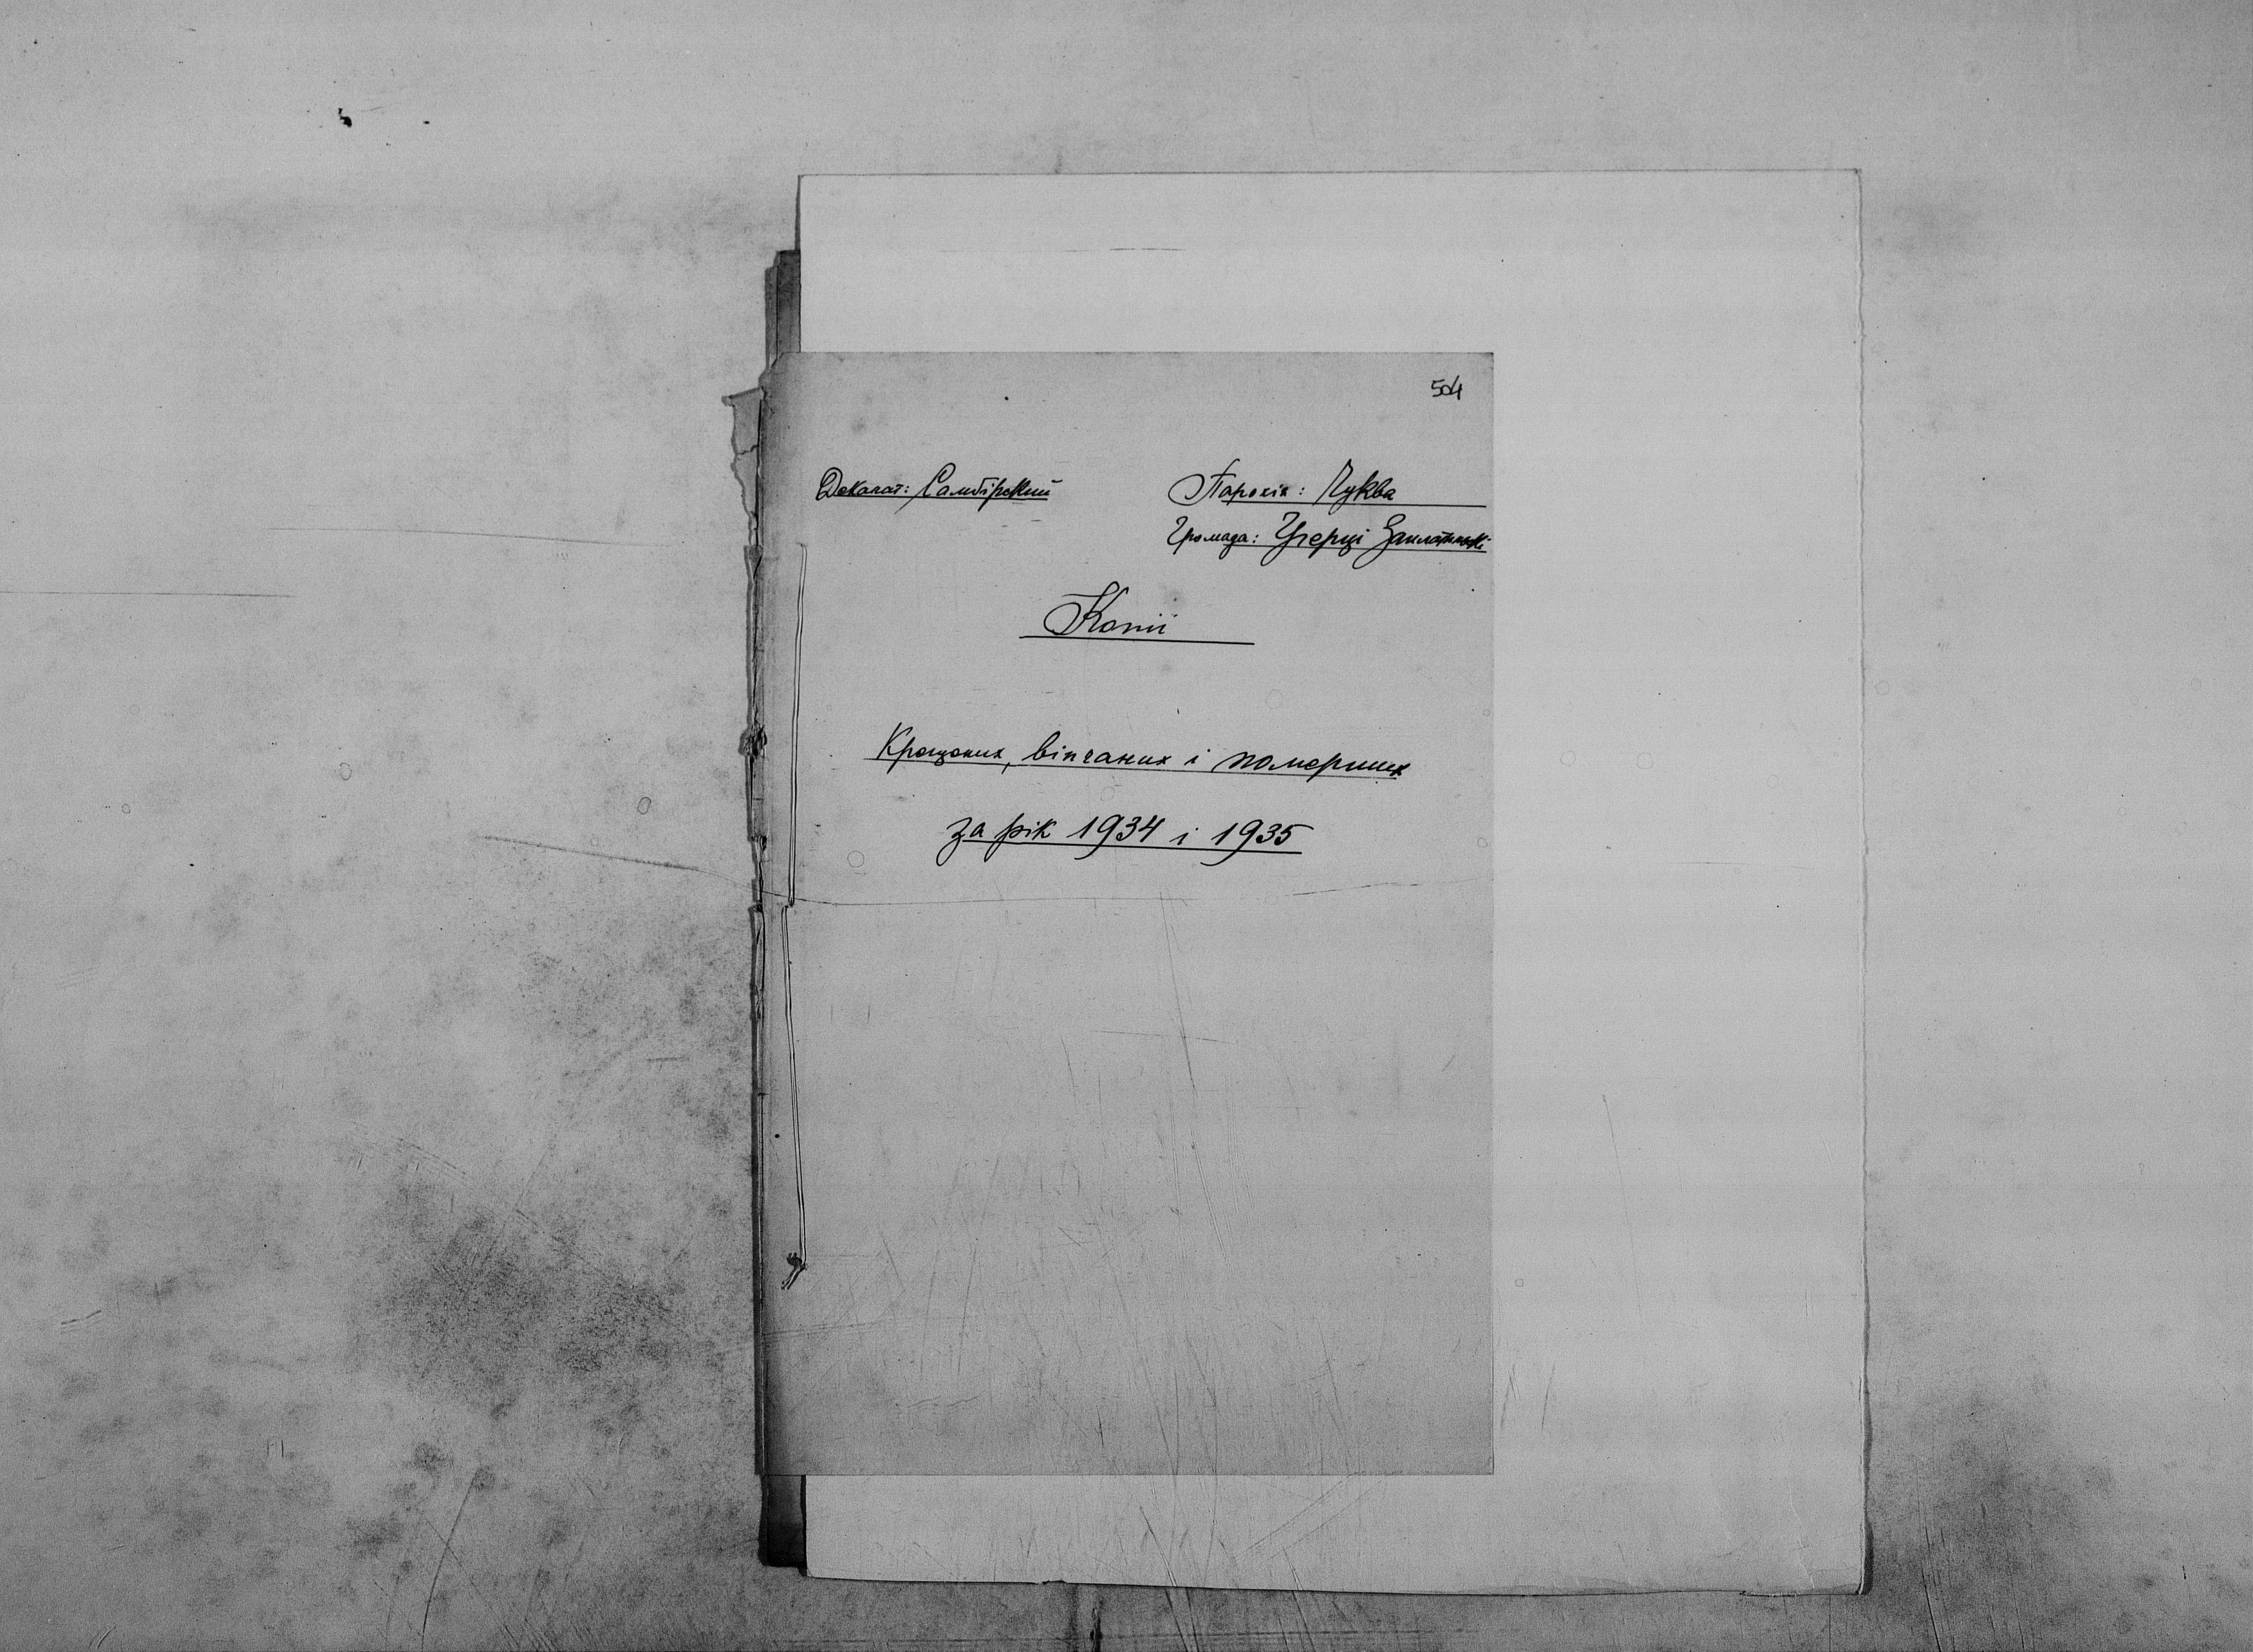 504
Деканат: Самбірский
Парохія: Чуква
Громада: Угерці Заплатинські
Копії
Крещених, вінчаних і померших
за рік 1934 і 1935